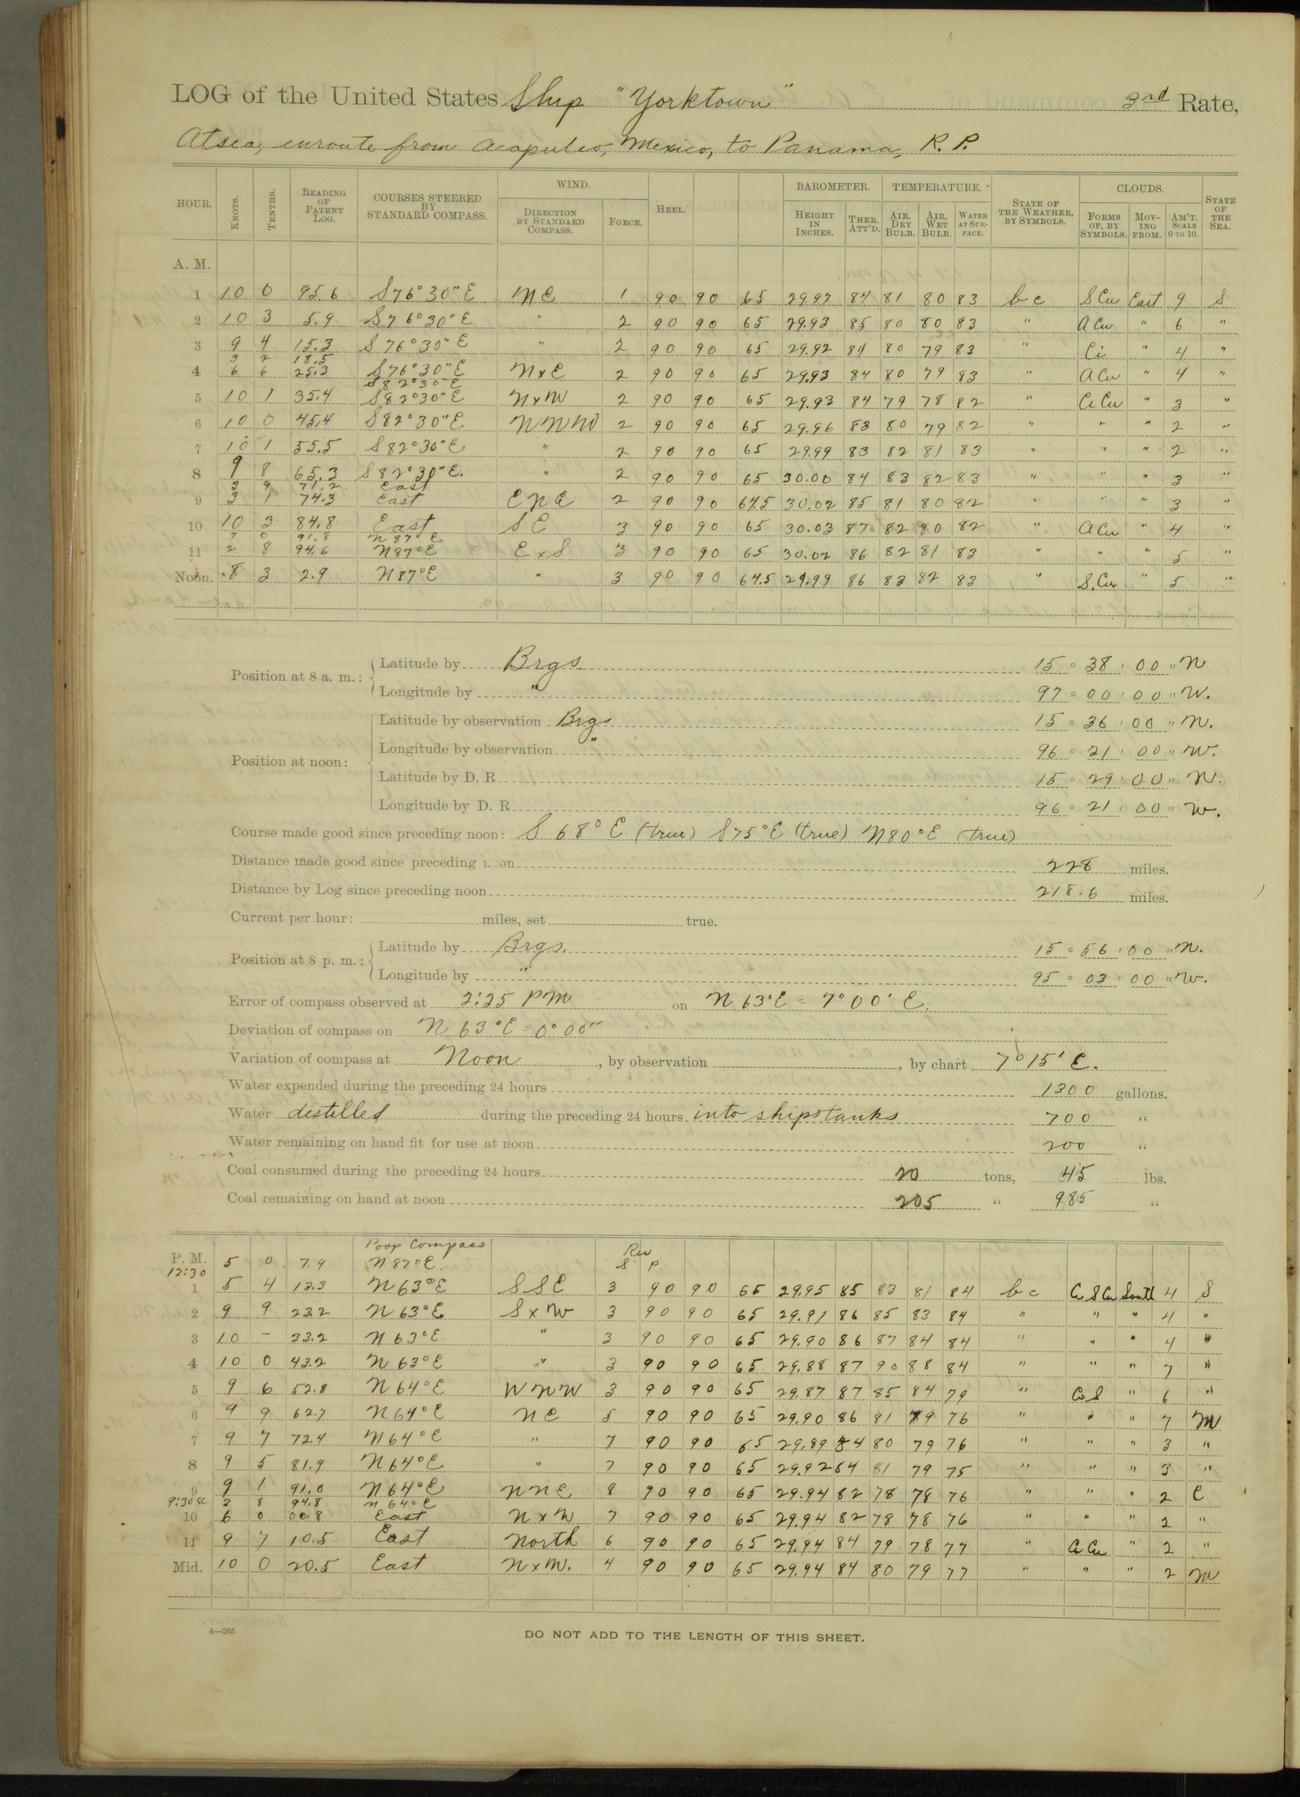 LOG of the United States Ship "Yorktown" 3rd Rate,
At sea, enroute from Acapulco, Mexico, to Panama, R. P.
HOUR. KNOTS. TENTHS. READING OF PATENT LOG. COURSES STEERED BY STANDARD COMPASS. WIND. DIRECTION BY STANDARD COMPASS. FORCE. HEEL. BAROMETER. HEIGHT IN INCHES. THER. ATT'D. TEMPERATURE. AIR, DRY BULB. AIR, WET BULB. WATER AT SURFACE. STATE OF THE WEATHER, BY SYMBOLS. CLOUDS. FORMS OF, BY SYMBOLS. MOVING FROM. AM'T. SCALE 0 TO 10. STATE OF THE SEA.
A. M.
1 10 0 95.6 S76°30"E NE 1 90 90 65 29.97 84 81 80 83 bc S Cu East 9 S
2 10 3 5.9 S76°30"E " 2 90 90 65 29.93 85 80 80 83 " A Cu " 6 "
3 9 4 15.3 S76°30"E " 2 90 90 65 29.92 84 80 79 83 " Ci " 4 "
3 2 18.5
4 6 6 25.3 S76°30"E NxE 2 90 90 65 29.93 84 80 79 83 " A Cu " 4 "
S82°30"E
5 10 1 35.4 S82°30"E NxW 2 90 90 65 29.93 84 79 78 82 " Ci Cu " 3 "
6 10 0 45.4 S82°30"E NNW 2 90 90 65 29.96 83 80 79 82 " " " 2 "
7 10 1 55.5 S82°30"E " 2 90 90 65 29.99 83 82 81 83 " " " 2 "
8 9 8 65.3 S82°30"E. " 2 90 90 65 30.00 84 83 82 83 " " " 3 "
3 9 71.2 East
9 3 1 74.3 East ENE 2 90 90 64.5 30.02 85 81 80 82 " " " 3 "
10 10 3 84.8 East SE 3 90 90 65 30.03 87 82 80 82 " A Cu " 4 "
7 0 91.8 N87°E
11 2 8 94.6 N87°E ExS 3 90 90 65 30.02 86 82 81 83 " " " 5 "
Noon. 8 3 2.9 N87°E " 3 90 90 64.5 29.99 86 83 82 83 " S. Cu " 5 "
Position at 8 a. m.: Latitude by Brgs. 15° 38' 00" N
Longitude by " 97° 00' 00" W.
Position at noon: Latitude by observation Brgs 15° 36' 00" N.
Longitude by observation " 96° 21' 00" W.
Latitude by D. R. 15° 29' 00" N.
Longitude by D. R. 96° 21' 00" W.
Course made good since preceding noon: S 68° E (true) S75°E (true) N80°E (true)
Distance made good since preceding noon 228 miles.
Distance by Log since preceding noon 218.6 miles.
Current per hour: miles, set true.
Position at 8 p. m.: Latitude by Brgs. 15° 56' 00" N.
Longitude by " 95° 03' 00" W.
Error of compass observed at 2:25 PM on N 63°E = 7°00' E.
Deviation of compass on N 63°E = 0°00"
Variation of compass at Noon, by observation , by chart 7°15' E.
Water expended during the preceding 24 hours 1300 gallons.
Water distilled during the preceding 24 hours into ships tanks 700 "
Water remaining on hand fit for use at noon 200 "
Coal consumed during the preceding 24 hours 20 tons, 45 lbs.
Coal remaining on hand at noon 205 " 985 "
Poop Compass Rev
P. M. 5 0 7.9 N87°E. S P
12:30
1 5 4 13.3 N63°E SSE 3 90 90 65 29.95 85 83 81 84 bc Ci S Cu South 4 S
2 9 9 23.2 N63°E SxW 3 90 90 65 29.91 86 85 83 84 " " " 4 "
3 10 – 33.2 N63°E " 3 90 90 65 29.90 86 87 84 84 " " " 4 "
4 10 0 43.2 N63°E " 3 90 90 65 29.88 87 90 88 84 " " " 7 "
5 9 6 52.8 N64°E WNW 3 90 90 65 29.87 87 85 84 79 " Ci S " 6 "
6 9 9 62.7 N64°E NE 5 90 90 65 29.90 86 81 79 76 " " " 7 M
7 9 7 72.4 N64°E " 7 90 90 65 29.89 84 80 79 76 " " " 3 "
8 9 5 81.9 N64°E " 7 90 90 65 29.92 84 81 79 75 " " " 3 "
9 9 1 91.0 N64°E NNE 8 90 90 65 29.94 82 78 78 76 " " " 2 E
9:30 3 8 94.8 N64°E
10 6 0 00.8 East NxW 7 90 90 65 29.94 82 78 78 76 " " " 2 "
11 9 7 10.5 East North 6 90 90 65 29.94 84 79 78 77 " Ci Cu " 2 "
Mid. 10 0 20.5 East NxW. 4 90 90 65 29.94 84 80 79 77 " " " 2 M
4—265
DO NOT ADD TO THE LENGTH OF THIS SHEET.